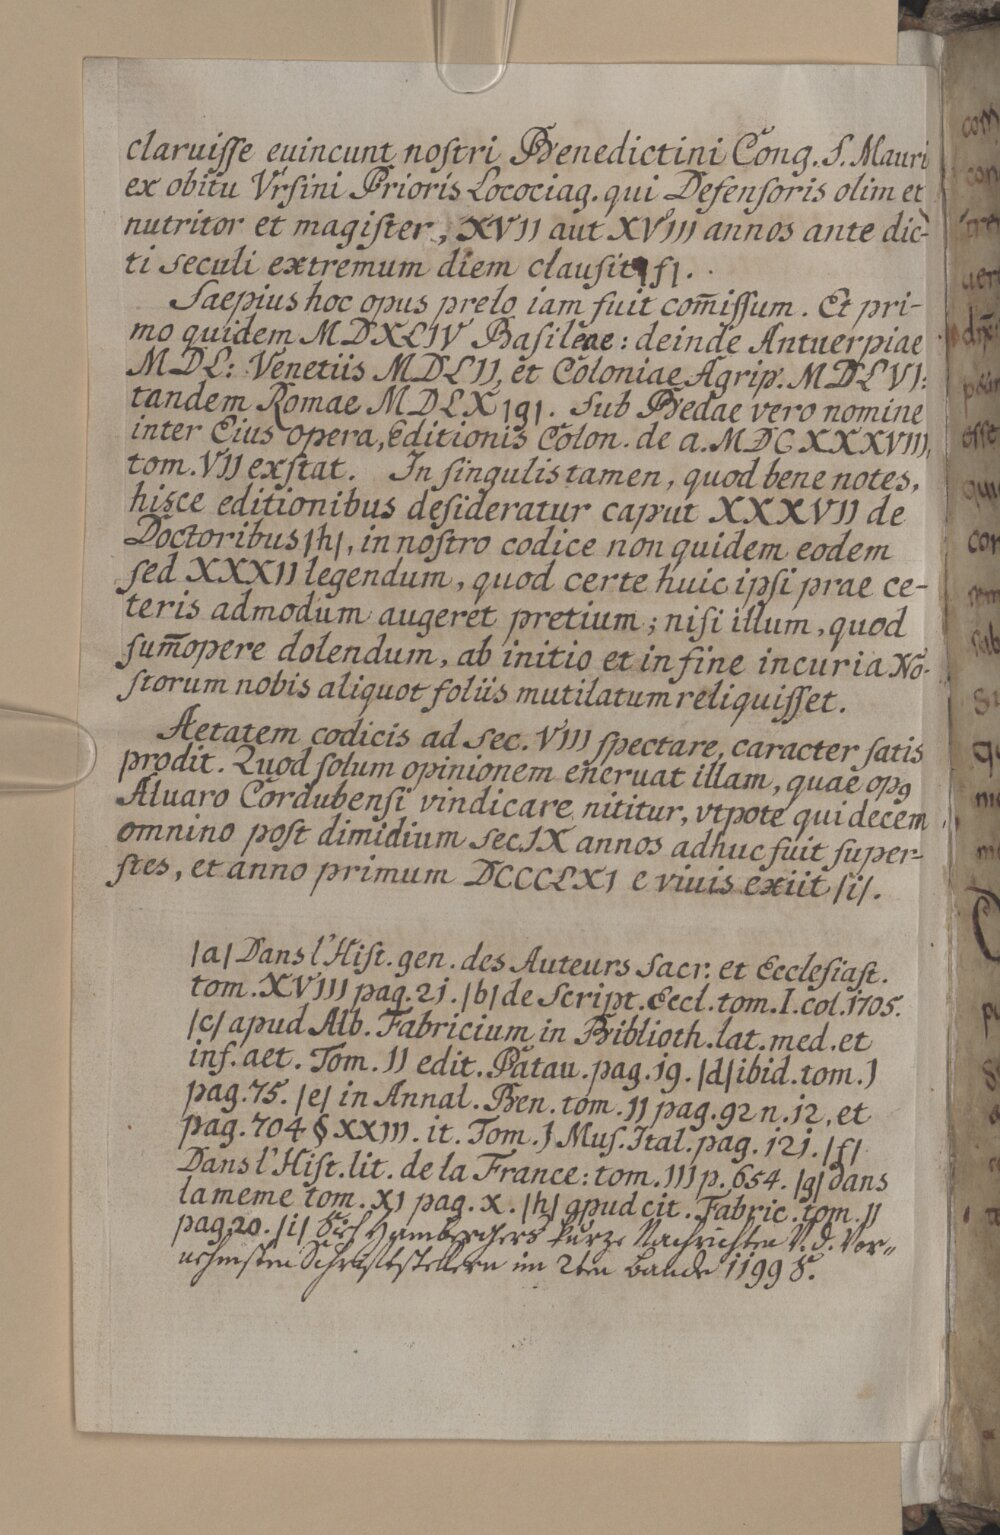 claruisse euincunt nostri Benedictini Cong. S. Mauri
ex obitu Vrsini Prioris Locociag. qui Defensoris olim et
nutritor et magister, XVII aut XVIII annos ante dic-
ti seculi extremum diem clausit |f|.
Saepius hoc opus prelo iam fuit com̄issum. Et pri-
mo quidem MDXLIV Basileae: deinde Antuerpiae
MDL: Venetiis MDLII, et Coloniae Agrip. MDLVI:
tandem Romae MDLX |g|. Sub Bedae vero nomine
inter Eius opera, Editionis Colon. de a. MDCXXXVIII,
tom. VII exstat. In singulis tamen, quod bene notes,
hisce editionibus desideratur caput XXXVII de
Doctoribus |h|, in nostro codice non quidem eodem
sed XXXII legendum, quod certe huic ipsi prae ce-
teris admodum augeret pretium; nisi illum, quod
sum̄opere dolendum, ab initio et in fine incuria No-
storum nobis aliquot foliis mutilatum reliquisset.
Aetatem codicis ad sec. VIII spectare, caracter satis
prodit. Quod solum opinionem eneruat illam, quae opꝯ
Aluaro Cordubensi vindicare nititur, vtpote qui decem
omnino post dimidium sec. IX annos adhuc fuit super-
stes, et anno primum DCCCLXI e viuis exiit |i|.
|a| Dans l'Hist. gen. des Auteurs Sacr. et Ecclesiast.
tom. XVIII pag. 21. |b| de Script. Eccl. tom. I. col. 1705.
|c| apud Alb. Fabricium in Biblioth. lat. med. et
inf. aet. Tom. II edit. Patau. pag. 19. |d| ibid. tom. I
pag. 75. |e| in Annal. Ben. tom. II pag. 92 n. 12, et
pag. 704 § XXIII. it. Tom. I Mus. Ital. pag. 121. |f|
Dans l'Hist. lit. de la France: tom. III p. 654. |g| dans
la meme tom. XI pag. X. |h| apud cit. Fabric. tom. II
pag 20. |i| Sieh Hambergers kurze Nachrichten v. d. Vor„
nehmsten Schriftstellern im 2ten Bande 1199 S.